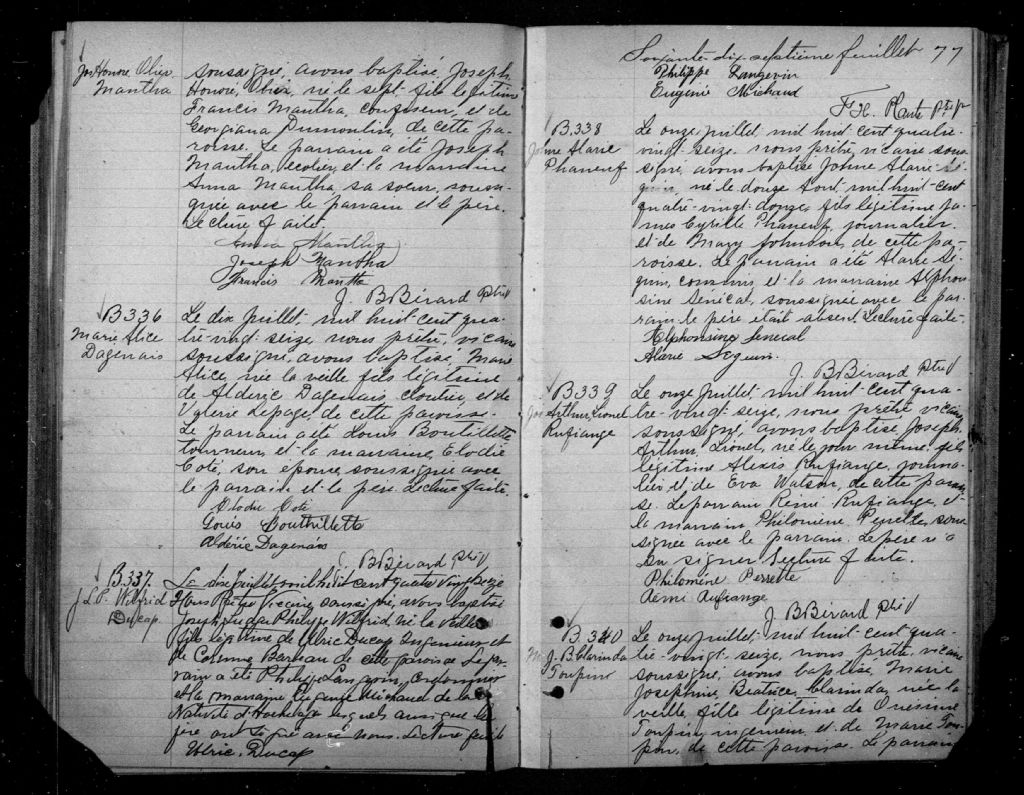 Jos Honoré Olier
Mantha
soussigné, avons baptisé, Joseph
Honoré, Olier, né le sept, fils légitime
Francis Mantha, confiseur, et de
Georgiana Dumoulin, de cette pa-
roisse. Le parrain a été Joseph
Mantha, écolier, et la marraine
Anna Mantha, sa soeur, soussi-
gnée avec le parrain et le père.
Lecture faite.
Anna Mantha
Joseph Mantha
Francis Mantha
J. B Bérard Ptre V
B336
Marie Alice
Dagenais
Le dix juillet, mil huit cent qua-
tre-vingt-seize, nous prêtre, vicaire
soussigné, avons baptisé, Marie
Alice, née la veille fils légitime
de Aldéric Dagenais, cloutier, et de
Valerie Lepage, de cette paroisse.
Le parrain a été Louis Boutillette
tourneur et la marraine, Elodie
Coté, son épouse, soussignée avec
le parrain et le père. Lecture faite.
Elodie Coté
Louis Bouthillette
Aldéric Dagenais
J. B Bérard Ptre V
B337.
J. L. P. Wilfrid
Ducap.
Le dix Juillet mil huit cent quatre vingt seize
Nous Prêtre Vicaire, soussigné, avons baptisé
Joseph Philippe Wilfrid, né la veille
fils légitime de Ulric Ducap Ingenieur et
de Barbeau de cette paroisse Le par-
rain a été Philippe Langevin, Cordonnier
et la marraine Eugenie Michaud de la
Nativité d'Hochelaga lesquels ainsi que le
père ont signé avec nous. Lecture faite
Ulric. Ducap
Soixante-dix-septième feuillet 77
Philippe Langevin
Eugenie Michaud
F. X. Ptre V
B.338
Johne Alarie
Phaneuf
Le onze juillet, mil huit cent quatre-
vingt-seize, nous prêtre, vicaire sous-
signé, avons baptisé Johne Alarie Sé-
guin, né le douze Aout, mil huit-cent
quatre-vingt-douze, fils légitime Ja-
mes Cyrille Phaneuf, journalier.
et de Mary Johnson, de cette pa-
roisse. Le parrain a été Alarie Sé-
guin, commis et la marraine Alphon-
sine Senécal, soussignée avec le par-
rain le père était absent. Lecture faite.
Alphonsine Senecal
Alarie Seguin.
J. B Bérard Ptre V
B339
Jos Arthur Lionel
Rufiange
Le onze juillet, mil huit cent qua-
tre-vingt-seize, nous prêtre vicaire
soussigné, avons baptisé Joseph
Arthur, Lionel, né le jour même, fils
légitime Alexis Rufiange, journa-
lier et de Eva Watson, de cette parois-
se. Le parrain Rémi Rufiange, et
la marraine Philomène Perrette, sous-
signée avec le parrain. Le père n'a
su signer Lecture faite.
Philomène Perrette
Rémi Rufiange
J B Bérard Ptre V
B 340
J. B. Clarinda
Toupin
Le onze juillet, mil huit cent qua-
tre-vingt-seize, nous, prêtre, vicaire
soussigné, avons baptisé, Marie
Josephine, Béatrice, Clarinda, née la
veille, fille légitime de Onésime
Toupin, ingenieur, et de Marie Tou-
pin, de cette paroisse. Le parrain